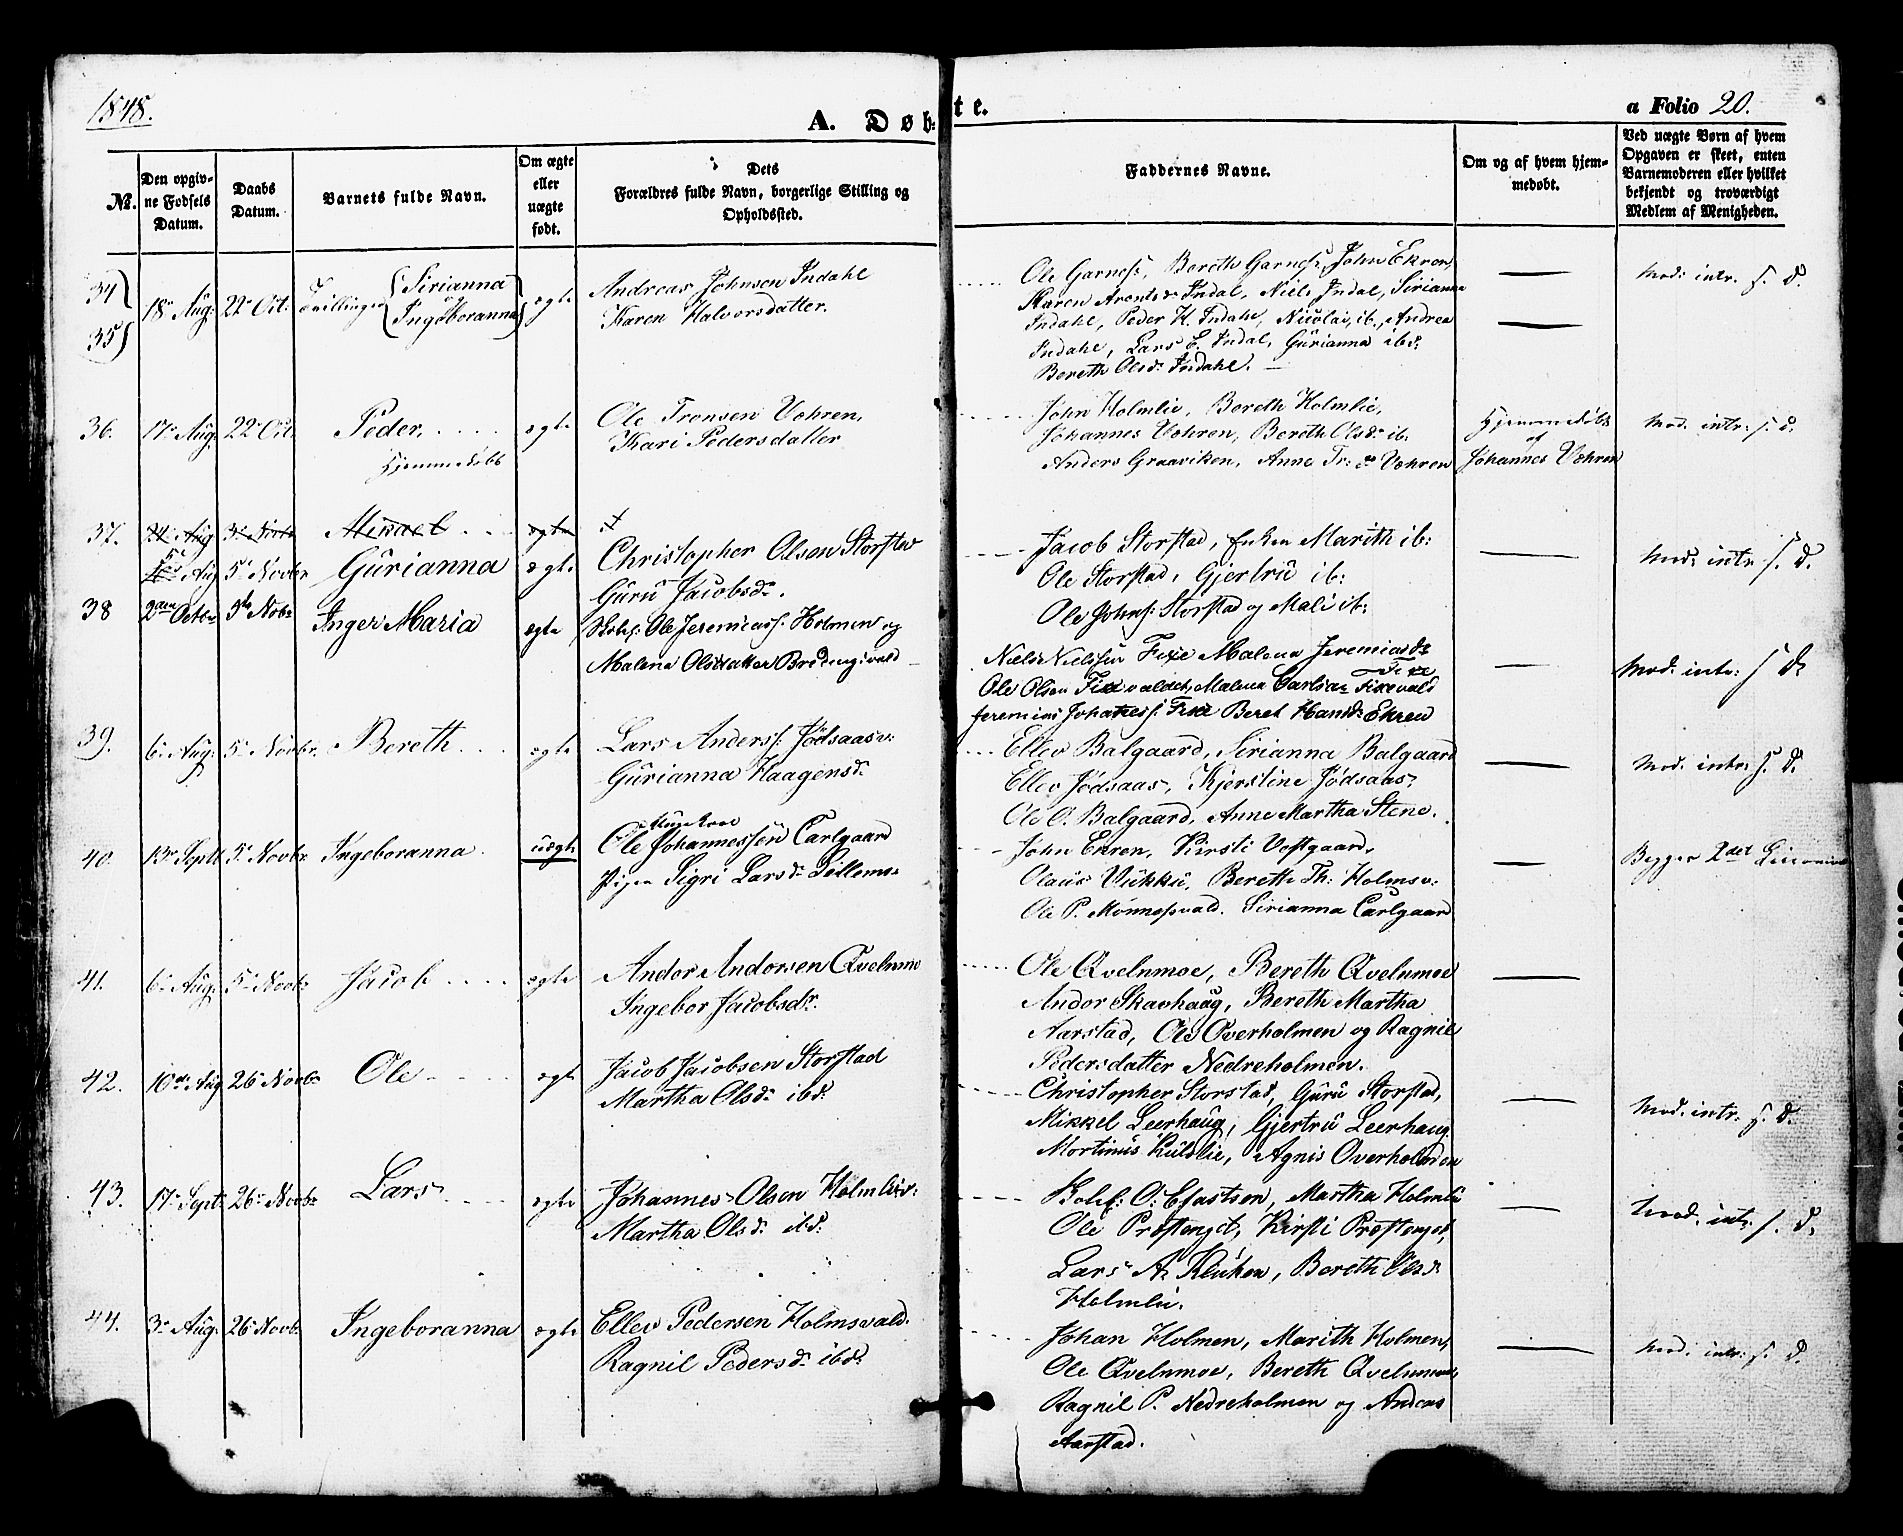 1848.
A. Døb-
te.
a Folio 20.
№.
Den opgiv-
ne Fødsels
Datum.
Daabs
Datum.
Barnets fulde Navn.
Om ægte
eller
uægte
født.
Dets
Forældres fulde Navn, borgerlige Stilling og
Opholdssted.
Faddernes Navne.
Om og af hvem hjem-
medøbt.
Ved uægte Børn af hvem
Opgaven er skeet, enten
Barnemoderen eller hvilket
bekjendt og troværdigt
Medlem af Menigheden.
34
35
18 Aug: 22 Oct:
Tvillinger
Sirianna
Ingeboranna
ægte
Andreas Johnsen Indahl
Karen Halvorsdatter.
Ole Garnes, Bereth Garnes, John Ekren,
Karen Arentsd. Indal, Niels Indal, Sirianna
Indahl, Peder H. Indahl, Nicolai ib., Andrea
Indahl, Lars E. Indal, Gurianna ibd:
Bereth Olsd. Indahl.
Mod: intr. s. d.
36. 17 Aug: 22 Oct.
Peder.
Hjemmedøbt
ægte
Ole Tronsen Vohren,
Kari Pedersdatter
John Holmlie, Bereth Holmlie,
Johannes Vohren, Bereth Olsd. ib.
Anders Graaviken, Anne Tr: d. Vohren
Hjemmedøbt
af
Johannes Vohren
Mod. intr: s. d.
37. 24 Aug 3 Novbr Mikael ægte
5 Aug 5 Novbr Gurianna ægte
Christopher Olsen Storstad
Guru Jacobsd.
Jacob Storstad, Enken Marith ib:
Ole Storstad, Gjertru ib:
Ole Johns: Storstad og Mali ib:
Mod: intr s. d.
38 2den Octbr 5te Nobr Inger Maria ægte
Skolel: Ole Jeremiass: Holmen og
Malena Olsdatter Bredingsvald
Niels Nielssen Fixe Malena Jeremiasd.
Fixe
Ole Olsen Fixevaldet, Malena Carlsd. Fixevald
Jeremias Johaness: Fixe Beret Hansd: Ekren
Mod: intr: s d.
39. 6 Aug: 5 Novbr. Bereth ægte
Lars Anderss: Jødsaasv:
Gurianna Haagensd.
Ellev Balgaard, Sirianna Balgaard
Ellev Jødsaas, Kjerstine Jødsaas,
Ole O. Balgaard, Anne Martha Stene.
Mod: intr: s. d.
40. 13 Septbr 5 Novbr. Ingeboranna. uægte
Ungkarl
Ole Johannessen Carlgaard
Pigen Sigri Larsd.
John Ekren, Kirsti Vestgaard,
Olaus Vukku, Bereth Th: Holmsv:
Ole P. Monnesvald. Sirianna Carlgaard
Begges 2det
41. 6 Aug: 5 Novbr Jacob ægte
Andor Andorsen Qvelnmo
Ingebor Jacobsdr.
Ole Qvelnmoe, Bereth Qvelnmoe
Andor Skavhaug, Bereth Martha
Aarstad, Ole Overholmen og Ragnil
Pedersdatter Nedreholmen.
42. 10 Aug 26 Novbr Ole ægte
Jacob Jacobsen Storstad
Martha Olsd. ibd.
Christopher Storstad, Guru Storstad,
Mikkel Leerhaug, Gjertru Leerhaug
Mortinus Kuldlie, Agnis Overholmen
Mod. intr. s. d.
43. 17 Sept: 26 Novbr Lars ægte
Johannes Olsen Holmliv:
Martha Olsd. ibd:
Skolel: O: Efastsen, Martha Holmli
Ole Præstenget, Kirsti Præstenget,
Lars A. Kluken, Bereth Olsd.
Holmlii.
Mod. intr. s. d.
44. 3 Aug: 26 Novbr Ingeboranna ægte
Ellev Pedersen Holmsvald.
Ragnil Pedersd. ibd.
Johan Holmen, Marith Holmen,
Ole Qvelnmoe, Bereth Qvelnmoe,
Ragnil P. Nedreholmen og Anders
Aarstad.
Mod: intr: s. d.